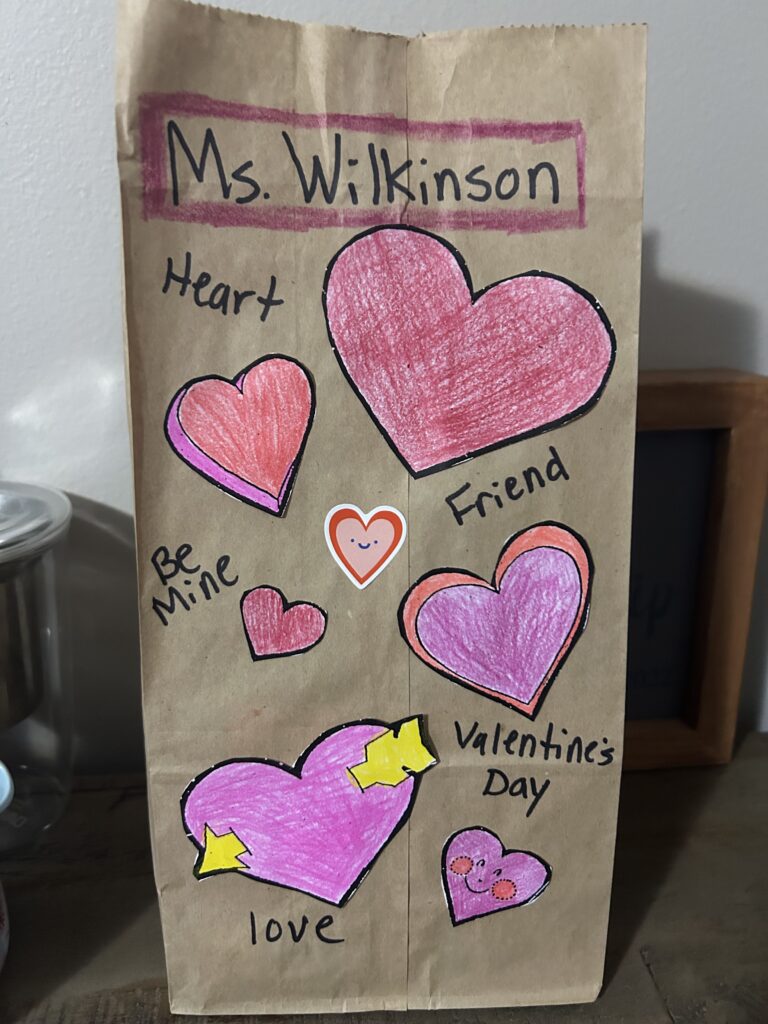 Ms. Wilkinson
Heart
Friend
Be
Mine
Valentine's
Day
love